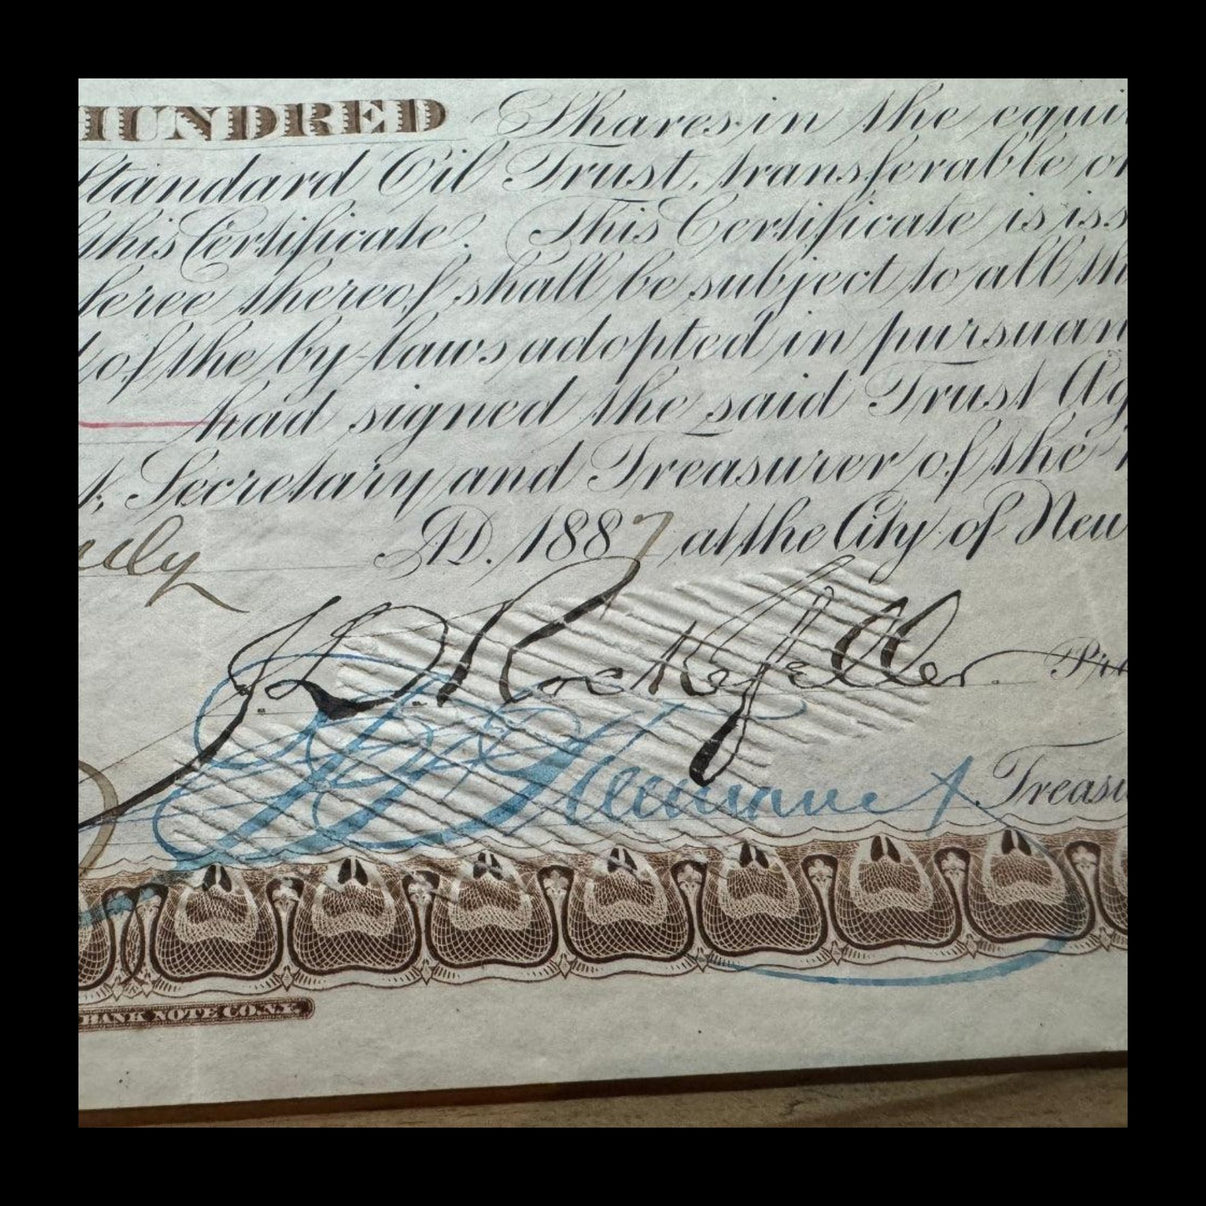 HUNDRED Shares in the equi
Standard Oil Trust, transferable o
this Certificate. This Certificate is iss
feree thereof shall be subject to all th
of the by-laws adopted in pursuan
had signed the said Trust Ag
t, Secretary and Treasurer of the
uly A.D. 1887 at the City of New
J.D. Rockefeller Pre
Treasu
BANK NOTE CO. N.Y.